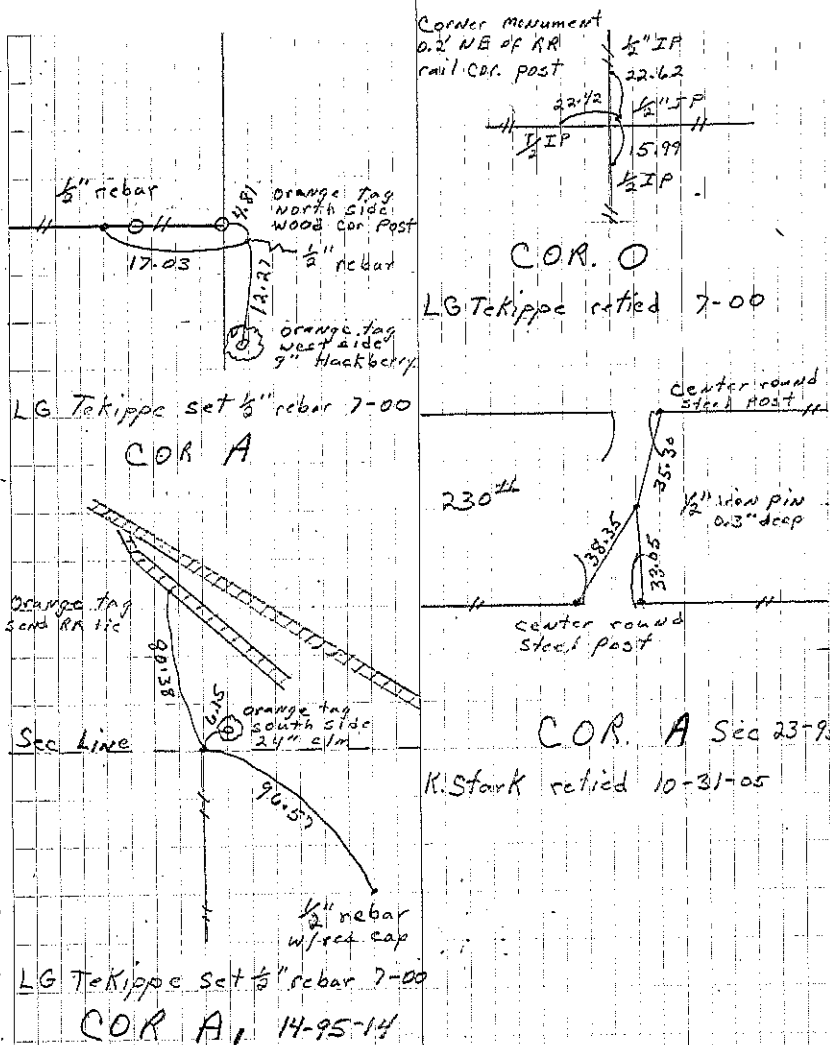 1/2" rebar
4.81
orange tag
north side
wood cor post
17.03
1/2"
rebar
12.27
orange tag
west side
9" Hackberry
LG Tekippe set 1/2" rebar 7-00
COR A
orange tag
RR tie
90.38
6.15
orange tag
south side
24" elm
Sec Line
96.57
1/2" rebar
w/red cap
LG Tekippe set 1/2" rebar 7-00
COR A, 14-95-14
Corner monument
0.2' NE of RR
rail cor. post
1/2" IP
22.62
22.42
1/2" IP
1/2 IP
15.99
1/2 IP
COR. O
LG Tekippe retied 7-00
center round
steel post
35.30
230th
1/2" iron pin
0.3" deep
38.35
33.05
center round
steel post
COR. A Sec 23-95
K. Stark retied 10-31-05